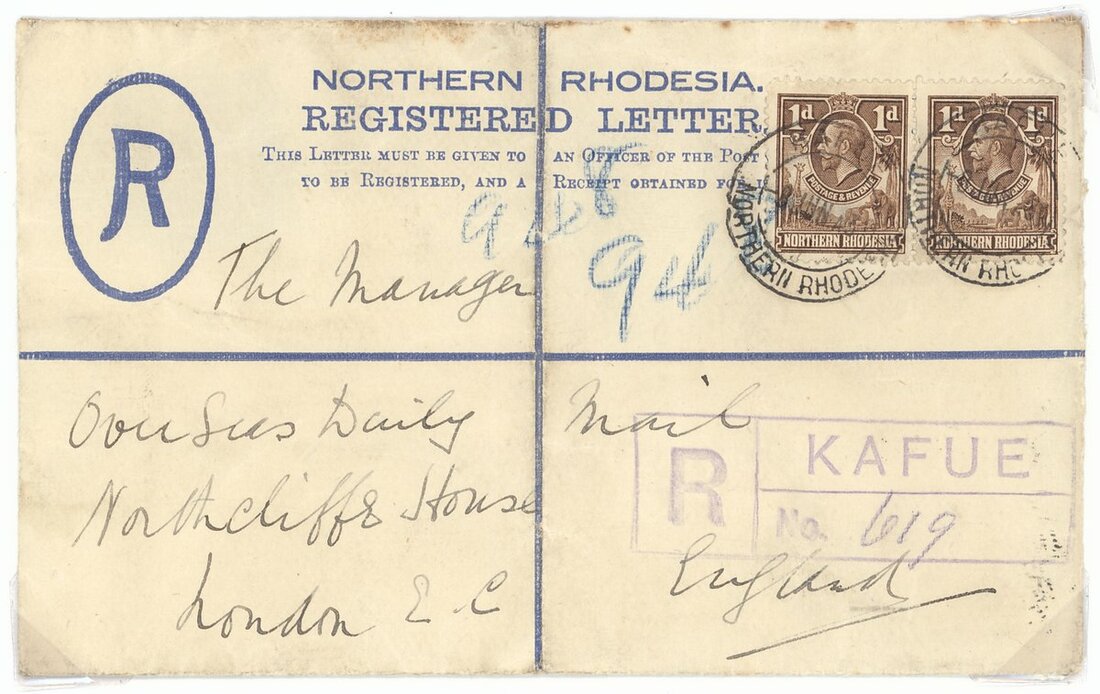 NORTHERN RHODESIA.
REGISTERED LETTER
THIS LETTER MUST BE GIVEN TO AN OFFICER OF THE POST
TO BE REGISTERED, AND A RECEIPT OBTAINED FOR I
R
1d 1d
POSTAGE & REVENUE
NORTHERN RHODESIA
1d 1d
POSTAGE & REVENUE
NORTHERN RHODESIA
NORTHERN RHODE
NORTHERN RHO
948
94
The Manager
Over Seas Daily Mail
Northcliffe House
London E C England
R KAFUE
No. 619